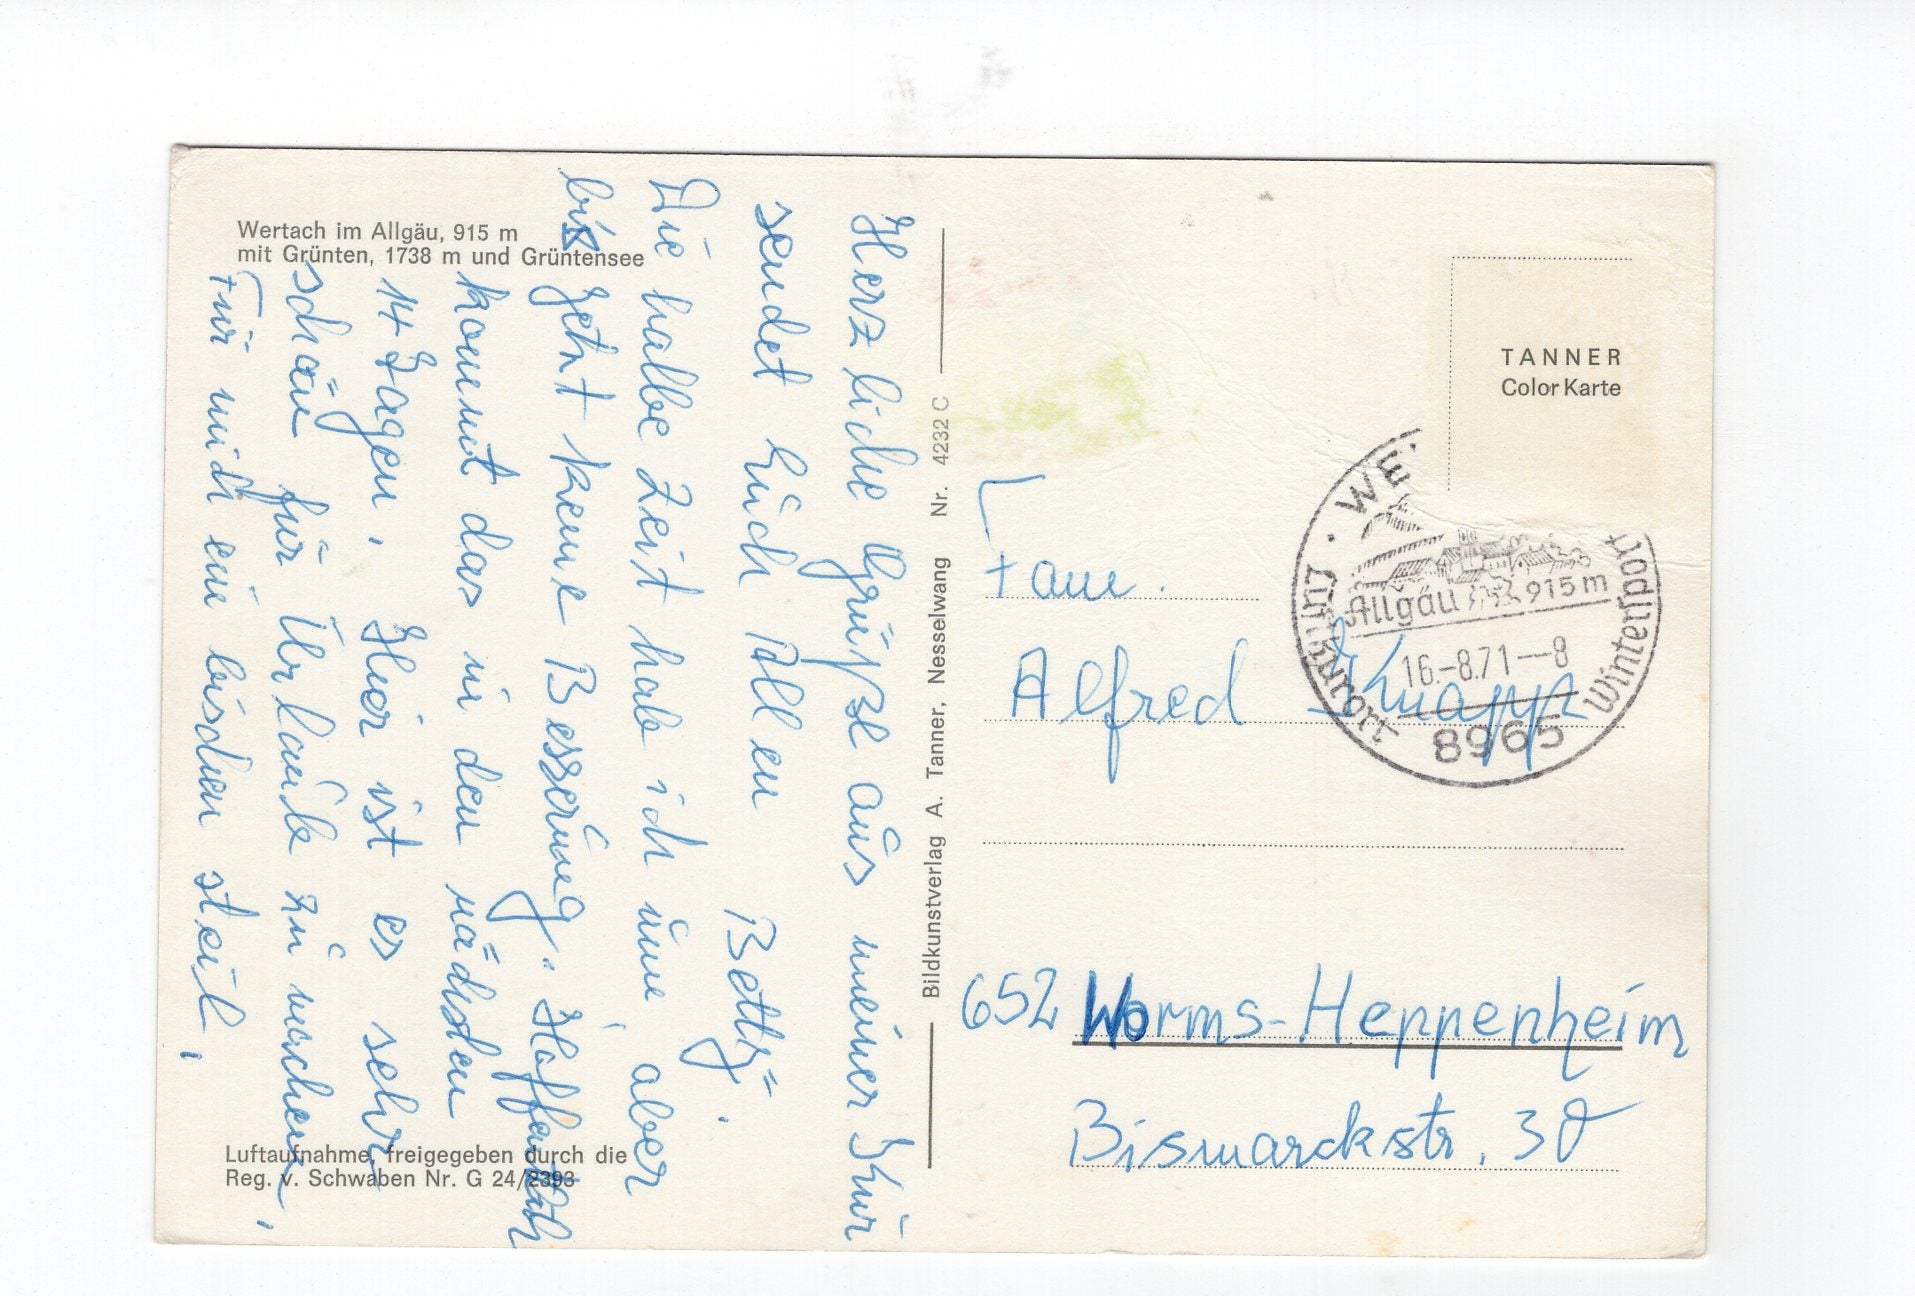 Wertach im Allgäu, 915 m
mit Grünten, 1738 m und Grüntensee
Herzliche Grüße aus meiner Kur
sendet Euch Allen
Betty.
Die halbe Zeit habe ich um, aber
bis jetzt keine Besserung. Hoffentlich
kommt das in den nächsten
14 Tagen. Hier ist es sehr
schön für Urlaub zu machen,
Für mich ein bischen steil.
Luftaufnahme, freigegeben durch die
Reg. v. Schwaben Nr. G 24/2393
Bildkunstverlag A. Tanner, Nesselwang Nr. 4232 C
TANNER
Color Karte
WE
Allgäu 915 m
16.-8.71--8
8965
Luftkurort
Wintersport
Fam.
Alfred Knapp
652 Worms-Heppenheim
Bismarckstr. 30